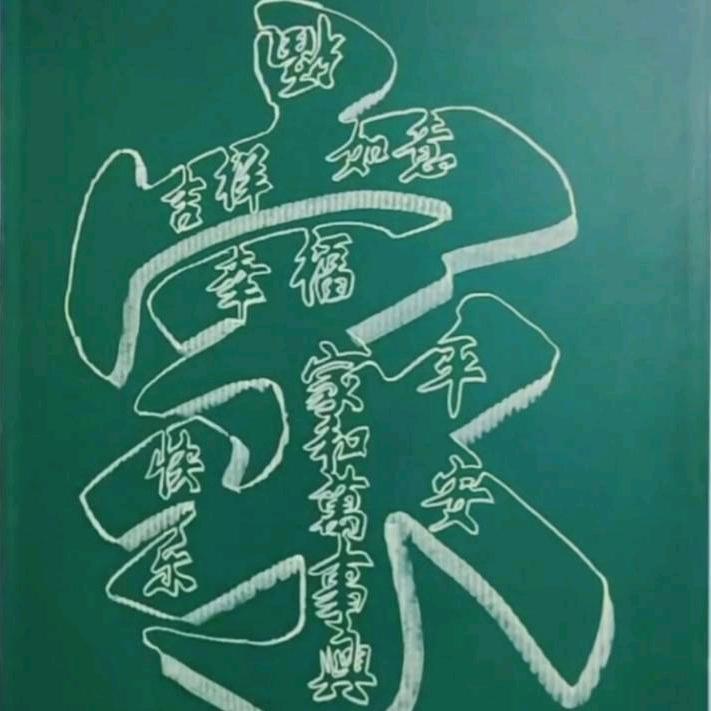 家
吉祥
如意
幸福
平安
快乐
家和萬事興